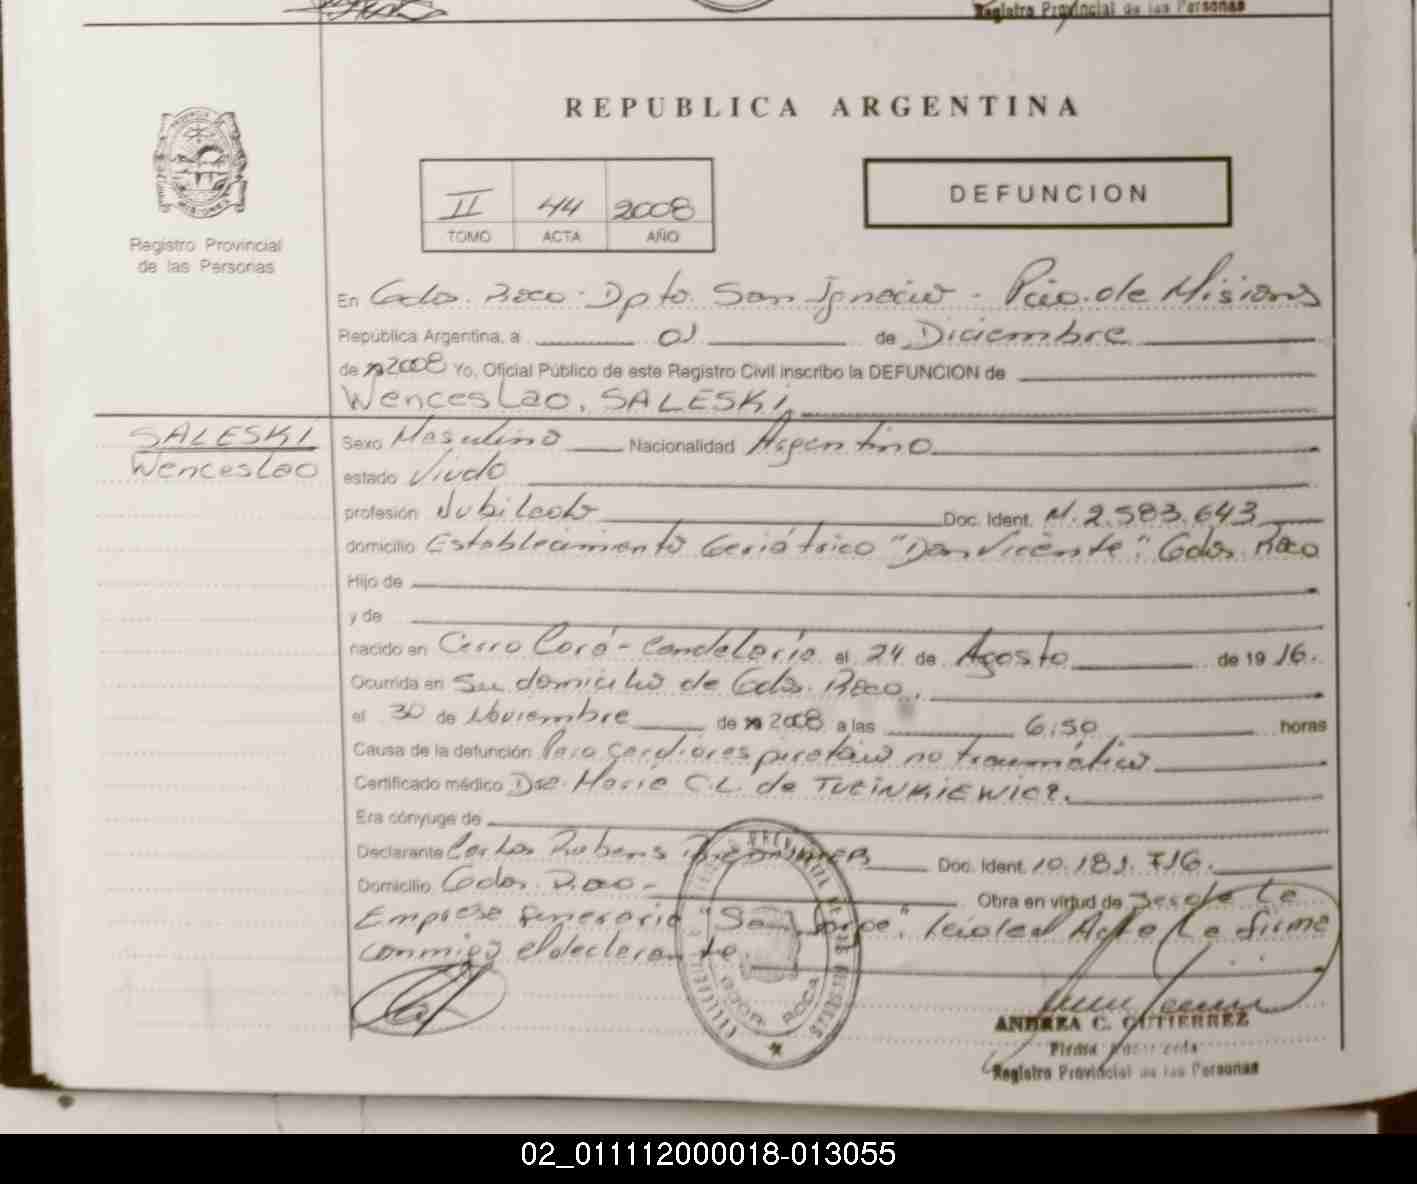 Registro Provincial de las Personas
REPUBLICA ARGENTINA
II 44 2008
TOMO ACTA AÑO
DEFUNCION
Registro Provincial
de las Personas
En Gdor. Roca - Dpto. San Ignacio - Pcia. de Misiones
República Argentina, a 01 de Diciembre
de 2008 Yo, Oficial Público de este Registro Civil inscribo la DEFUNCION de
Wenceslao, SALESKI
SALESKI
Wenceslao
Sexo Masculino Nacionalidad Argentino
estado Viudo
profesión Jubilado Doc. Ident. M. 2.583.643
domicilio Establecimiento Geriátrico "Don Vicente". Gdor. Roca
Hijo de
y de
nacido en Cerro Corá - Candelaria el 24 de Agosto de 1916.
Ocurrida en Su domicilio de Gdor. Roca.
el 30 de Noviembre de 2008 a las 6,50 horas
Causa de la defunción Paro Cardiorespiratorio no traumático
Certificado médico Dra. María C.L. de
Era cónyuge de
Declarante Carlos Rubens Doc. Ident. 10.181.716.
Domicilio Gdor. Roca - Obra en virtud de ser de la
Empresa funeraria "San Jorge". leída el Acta la firma
conmigo el declarante.
ANDREA C. GUTIERREZ
Firma Autorizada
Registro Provincial de las Personas
02_011112000018-013055